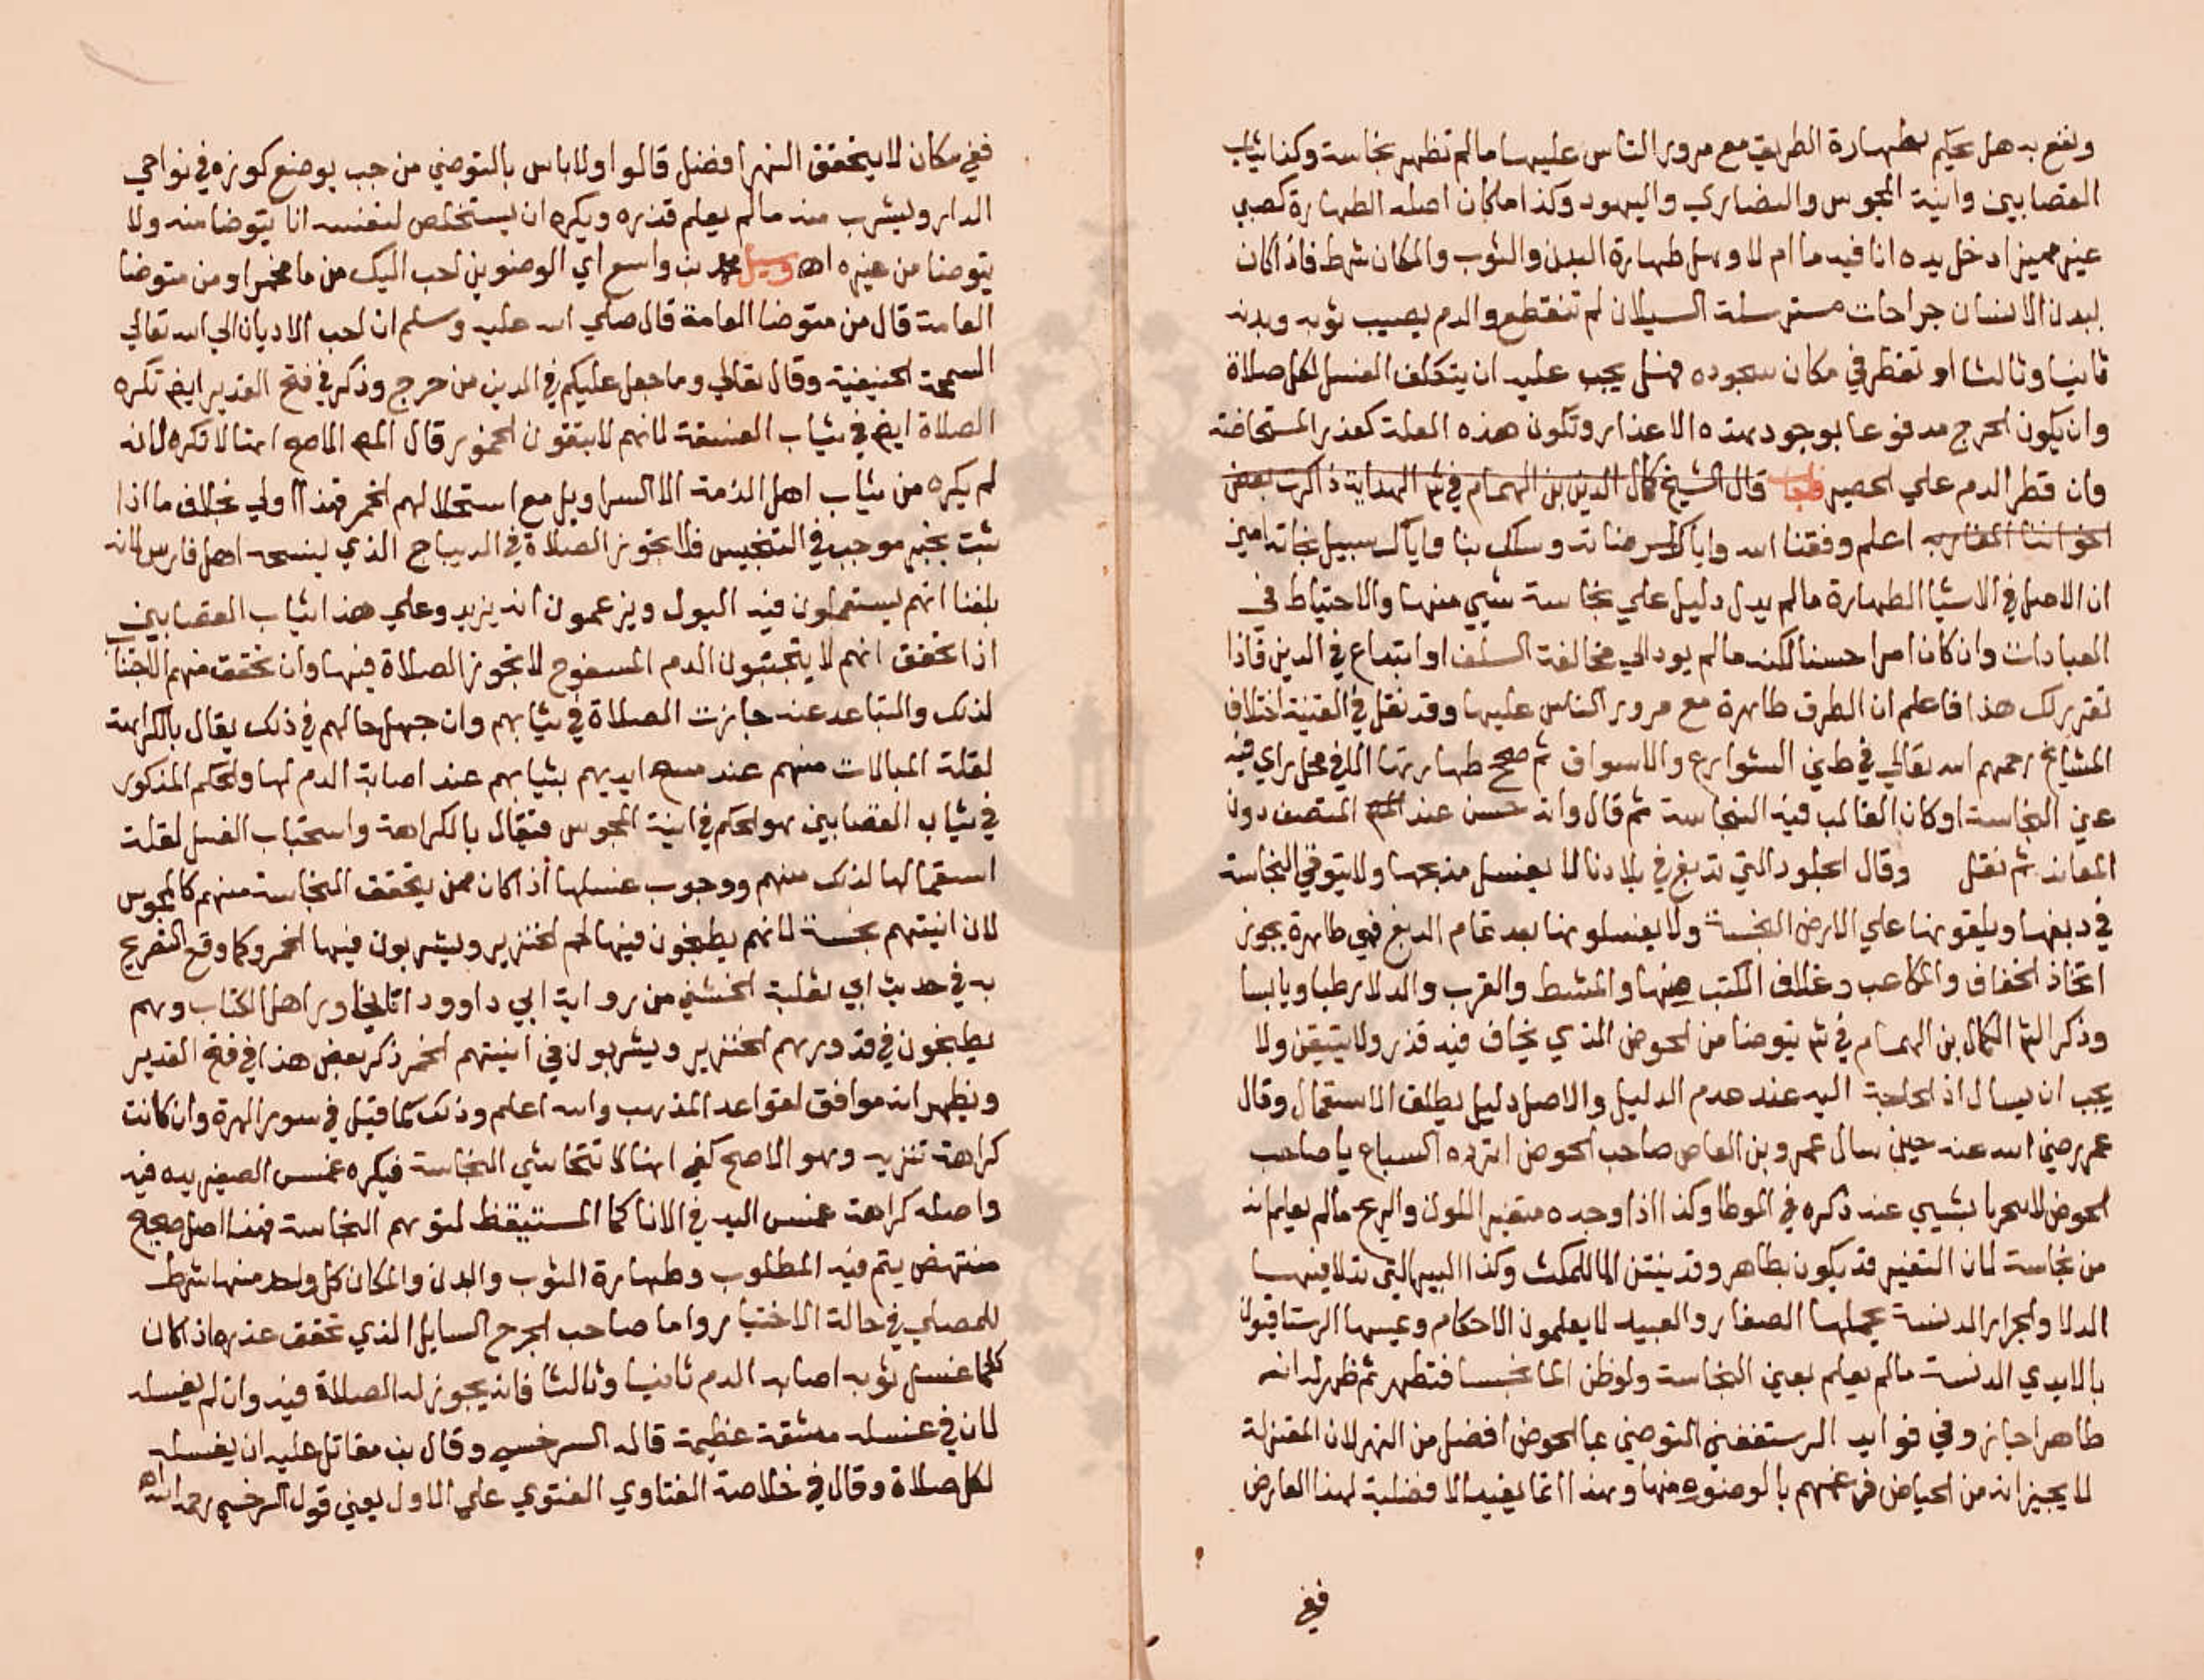 ونفع به هل يحكم بطهارة الطريق مع مرور الناس عليها ما لم تظهر نجاسة وكذا ثياب
القصابين وانية المجوس والنصاري واليهود وكذا ما كان اصله الطهارة كصبي
غير مميز ادخل يده انا فيه ما ام لا وهل طهارة البدن والثوب والمكان شرط فاذا كان
ببدن الانسان جراحات مسترسلة السيلان لم تنقطع والدم يصيب ثوبه وبدنه
ثانيا وثالثا او تقطر في مكان سجوده فهل يجب عليه ان يتكلف الغسل لكل صلاة
وان يكون الحرج مدفوعا بوجود هذه الاعذار وتكون هذه العلة كعذر المستحاضة
وان قطر الدم علي الحصير فاجاب قال الشيخ كمال الدين بن الهمام في شر الهداية ذاكرت بعض
اخواننا المغاربه اعلم وفقنا الله واياك لمرضاته وسلك بنا واياك سبيل نجاته امين
ان الاصل في الاشيا الطهارة ما لم يدل دليل علي نجاسة شيي منها والاحتياط في
العبادات وان كان امرا حسنا لكنه ما لم يود الي مخالفة السلف او ابتداع في الدين فاذا
تقرر لك هذا فاعلم ان الطرق طاهرة مع مرور الناس عليها وقد نقل في القنية اختلاف
المشايخ رحمهم الله تعالي في طين الشوارع والاسواق ثم صحح طهارتها الا في محل راي فيه
عين النجاسة او كان الغالب فيه النجاسة ثم قال وانه حسن عند المنصف دون
المعاند ثم نقل وقال الجلود التي تدبغ في بلادنا لا يغسل مذبحها ولا يتوقي النجاسة
في دبغها ويلقونها علي الارض النجسة ولا يغسلونها بعد تمام الدبغ فهي طاهرة يجوز
اتخاذ الخفاف والمكاعب وغلاف الكتب منها والمشط والقرب والدلا رطبا ويابسا
وذكر الشر الكمال بن الهمام في شر يتوضا من الحوض الذي يخاف فيه قذر ولا يتيقن ولا
يجب ان يسال اذ الحاجة اليه عند عدم الدليل والاصل دليل يطلق الاستعمال وقال
عمر رضي الله عنه حين سال عمرو بن العاص صاحب الحوض اترده السباع يا صاحب
الحوض لا تخبرنا بشيي عنه ذكره في الموطا وكذا اذا وجده متغير اللون والريح ما لم يعلم انه
من نجاسة لان التغير قد يكون بطاهر وقد ينتن الما للمكث وكذا البير التي تدلا فيها
الدلا والجرار الدنسة يحملها الصغار والعبيد لا يعلمون الاحكام ويمسها الرستاقيون
بالايدي الدنسة ما لم يعلم يعني النجاسة ولو ظن الما نجسا فتطهر ثم ظهر له انه
طاهرا جاز وفي فوايد الرستغفني التوضي بما الحوض افضل من النهر لان المعتزلة
لا يجيزانه من الحياض فرغمهم بالوضوء منها وهذا انما يفيد الافضلية لهذا العارض
ففي
ففي مكان لا يتحقق النهر افضل قالوا ولا باس بالتوضي من جب يوضع كوزه في نواحي
الدار ويشرب منه ما لم يعلم قذره ويكره ان يستخلص لنفسه انا يتوضا منه ولا
يتوضا من غيره اه وسيل محمد بن واسع اي الوضوين احب اليك من ما مخمر او من متوضا
العامة قال من متوضا العامة قال صلي الله عليه وسلم ان احب الاديان الي الله تعالي
السمحة الحنيفية وقال تعالي وما جعل عليكم في الدين من حرج وذكر في فتح القدير ايض تكره
الصلاة ايض في ثياب الفسقة لانهم لا يتقون الخمور قال المص الاصح انها لا تكره لانه
لم يكره من ثياب اهل الذمة الا السراويل مع استحلالهم الخمر فهذا اولي بخلاف ما اذا
ثبت بخبر موجب في التنجيس فلا تجوز الصلاة في الديباج الذي ينسجه اهل فارس لانه
بلغنا انهم يستعملون فيه البول ويزعمون انه يزيد وعلي هذا ثياب القصابين
اذا تحقق انهم لا يتجنبون الدم المسفوح لا تجوز الصلاة فيها وان تحقق منهم الاجتناب
لذلك والتباعد عنه جازت الصلاة في ثيابهم وان جهل حالهم في ذلك يقال بالكراهة
لقلة المبالات منهم عند مسح ايديهم بثيابهم عند اصابة الدم لها والحكم المذكور
في ثياب القصابين هو الحكم في انية المجوس فيقال بالكراهة واستحباب الغسل لقلة
استعمالها لذلك منهم ووجوب غسلها اذا كان ممن يتحقق النجاسة منهم كالمجوس
لان انيتهم نجسة لانهم يطبخون فيها لحم الخنزير ويشربون فيها الخمر وكما وقع التصريح
به في حديث ابي ثعلبة الخشني من رواية ابي داوود انا نجاور اهل الكتاب وهم
يطبخون في قدورهم الخنزير ويشربون في انيتهم الخمر ذكر بعض هذا في فتح القدير
ويظهر انه موافق لقواعد المذهب والله اعلم وذلك كما قيل في سور الهرة وان كانت
كراهة تنزيه وهو الاصح كفي انها لا تتحاشي النجاسة فيكره غمس الصغير يده فيه
واصله كراهة غمس اليد في الانا كما المستيقظ لتوهم النجاسة فهذا اصل صحيح
منتهض يتم فيه المطلوب وطهارة الثوب والبدن والمكان كل واحد منها شرط
للمصلي في حالة الاختيار واما صاحب الجرح السايل الذي تحقق عذره اذا كان
كلما غسل ثوبه اصابه الدم ثانيا وثالثا فانه يجوز له الصلاة فيه وان لم يغسله
لان في غسله مشقة عظيمة قاله السرخسي وقال بن مقاتل عليه ان يغسله
لكل صلاة وقال في خلاصة الفتاوي الفتوي علي الاول يعني قول السرخسي رحمه الله اه